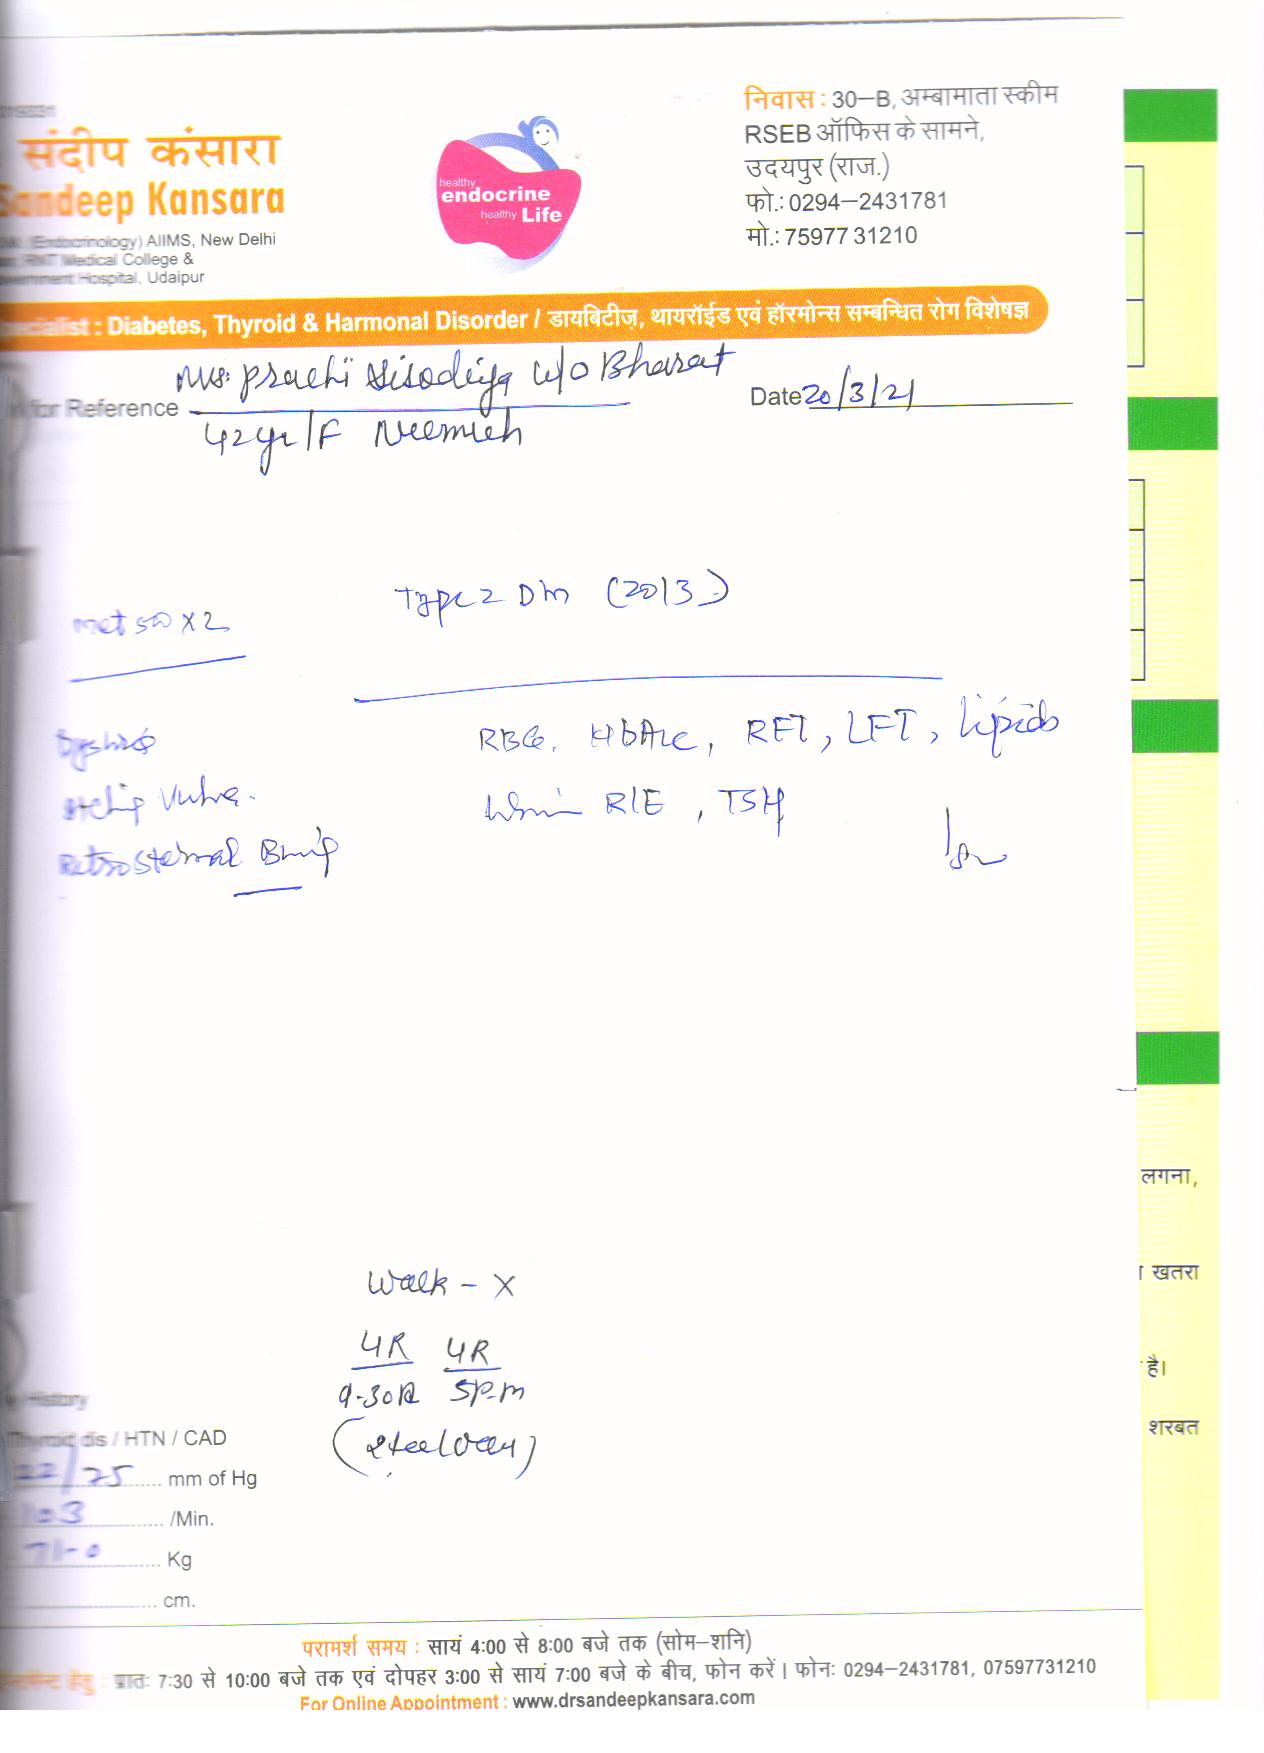 संदीप कंसारा
Sandeep Kansara
(Endocrinology) AIIMS, New Delhi
RNT Medical College &
Government Hospital, Udaipur
healthy
endocrine
healthy Life
निवास : 30–B, अम्बामाता स्कीम
RSEB ऑफिस के सामने,
उदयपुर (राज.)
फो.: 0294–2431781
मो.: 75977 31210
Specialist : Diabetes, Thyroid & Harmonal Disorder / डायबिटीज़, थायरॉईड एवं हॉरमोन्स सम्बन्धित रोग विशेषज्ञ
Mrs. Prachi Sisodiya w/o Bharat
for Reference
Date 20/3/21
42yr/F Neemuch
Type 2 DM (2013)
met 500 x 2
RBG, HbA1c, RFT, LFT, Lipids
Itching Vulva.
Urine R/E, TSH
Retrosternal Burning
लगना,
खतरा
Walk - X
है।
4R 4R
9-30 5 P.m
History
शरबत
Thyroid dis / HTN / CAD
22/75 mm of Hg
103 /Min.
71-0 Kg
cm.
परामर्श समय : सायं 4:00 से 8:00 बजे तक (सोम–शनि)
हेतु : प्रातः 7:30 से 10:00 बजे तक एवं दोपहर 3:00 से सायं 7:00 बजे के बीच, फोन करें। फोनः 0294–2431781, 07597731210
For Online Appointment : www.drsandeepkansara.com